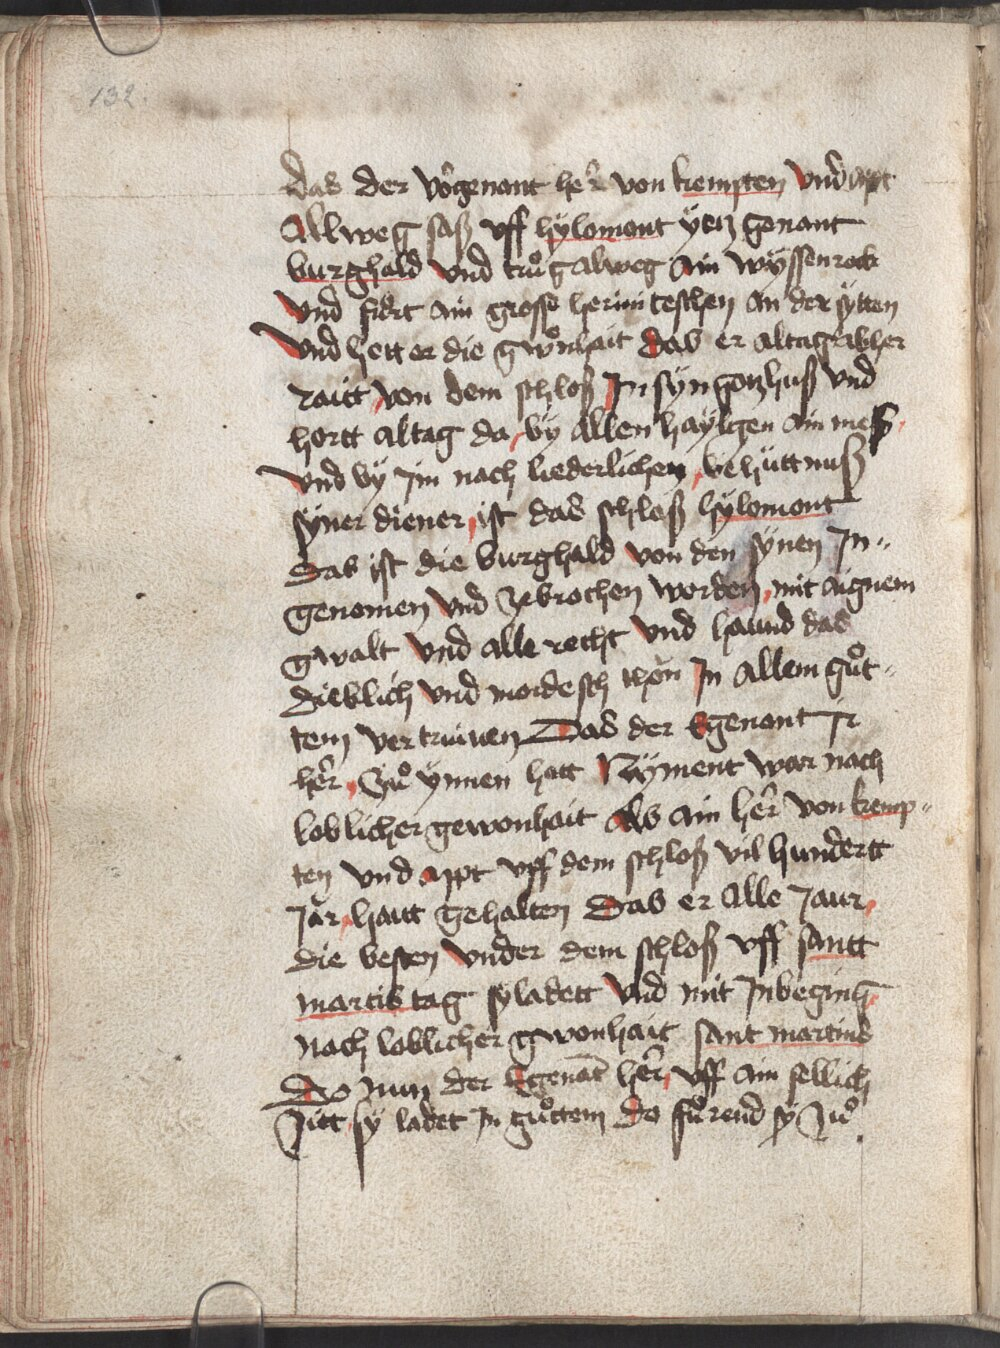 132.
das der vorgenant her von kempten vnd apt
Allweg saß vff hylomont yetz genant
burghald vnd truͦg alweg ain wyssen rock
vnd fiert ain grosse herini teschen an der sytten
vnd hett er die gwonhait das er altag
raitt von dem schloß In syn gotzhuß vnd
hortt altag da by allen haylgen ain meß
vnd by Im nach liederlichen behüttnuß
syner diener ist das schloß hylomont
Das ist die burghald von den synen In-
genomen vnd zebrochen worden mit aignem
gwalt vnd alle recht vnd haund das
dieblich vnd mordesch thon In allem guͦt-
tem vertruwen Das der Egenant Ir
her Zuͦ ynnen hatt Nyment war nach
loblicher gewonhait Als ain her von kemp-
ten vnd appt vff dem schloß vil hundertt
Jar haut gehalten Das er alle Jaur
die besten vnder dem schloß vff santt
martis tag sy ladett vnd mit In beging
nach loblicher gwonhait sant martins
Do nun der Egenant her vff ain sellich
Zitt sy ladet In guͦttem do fuͦrend sy Zuͦ